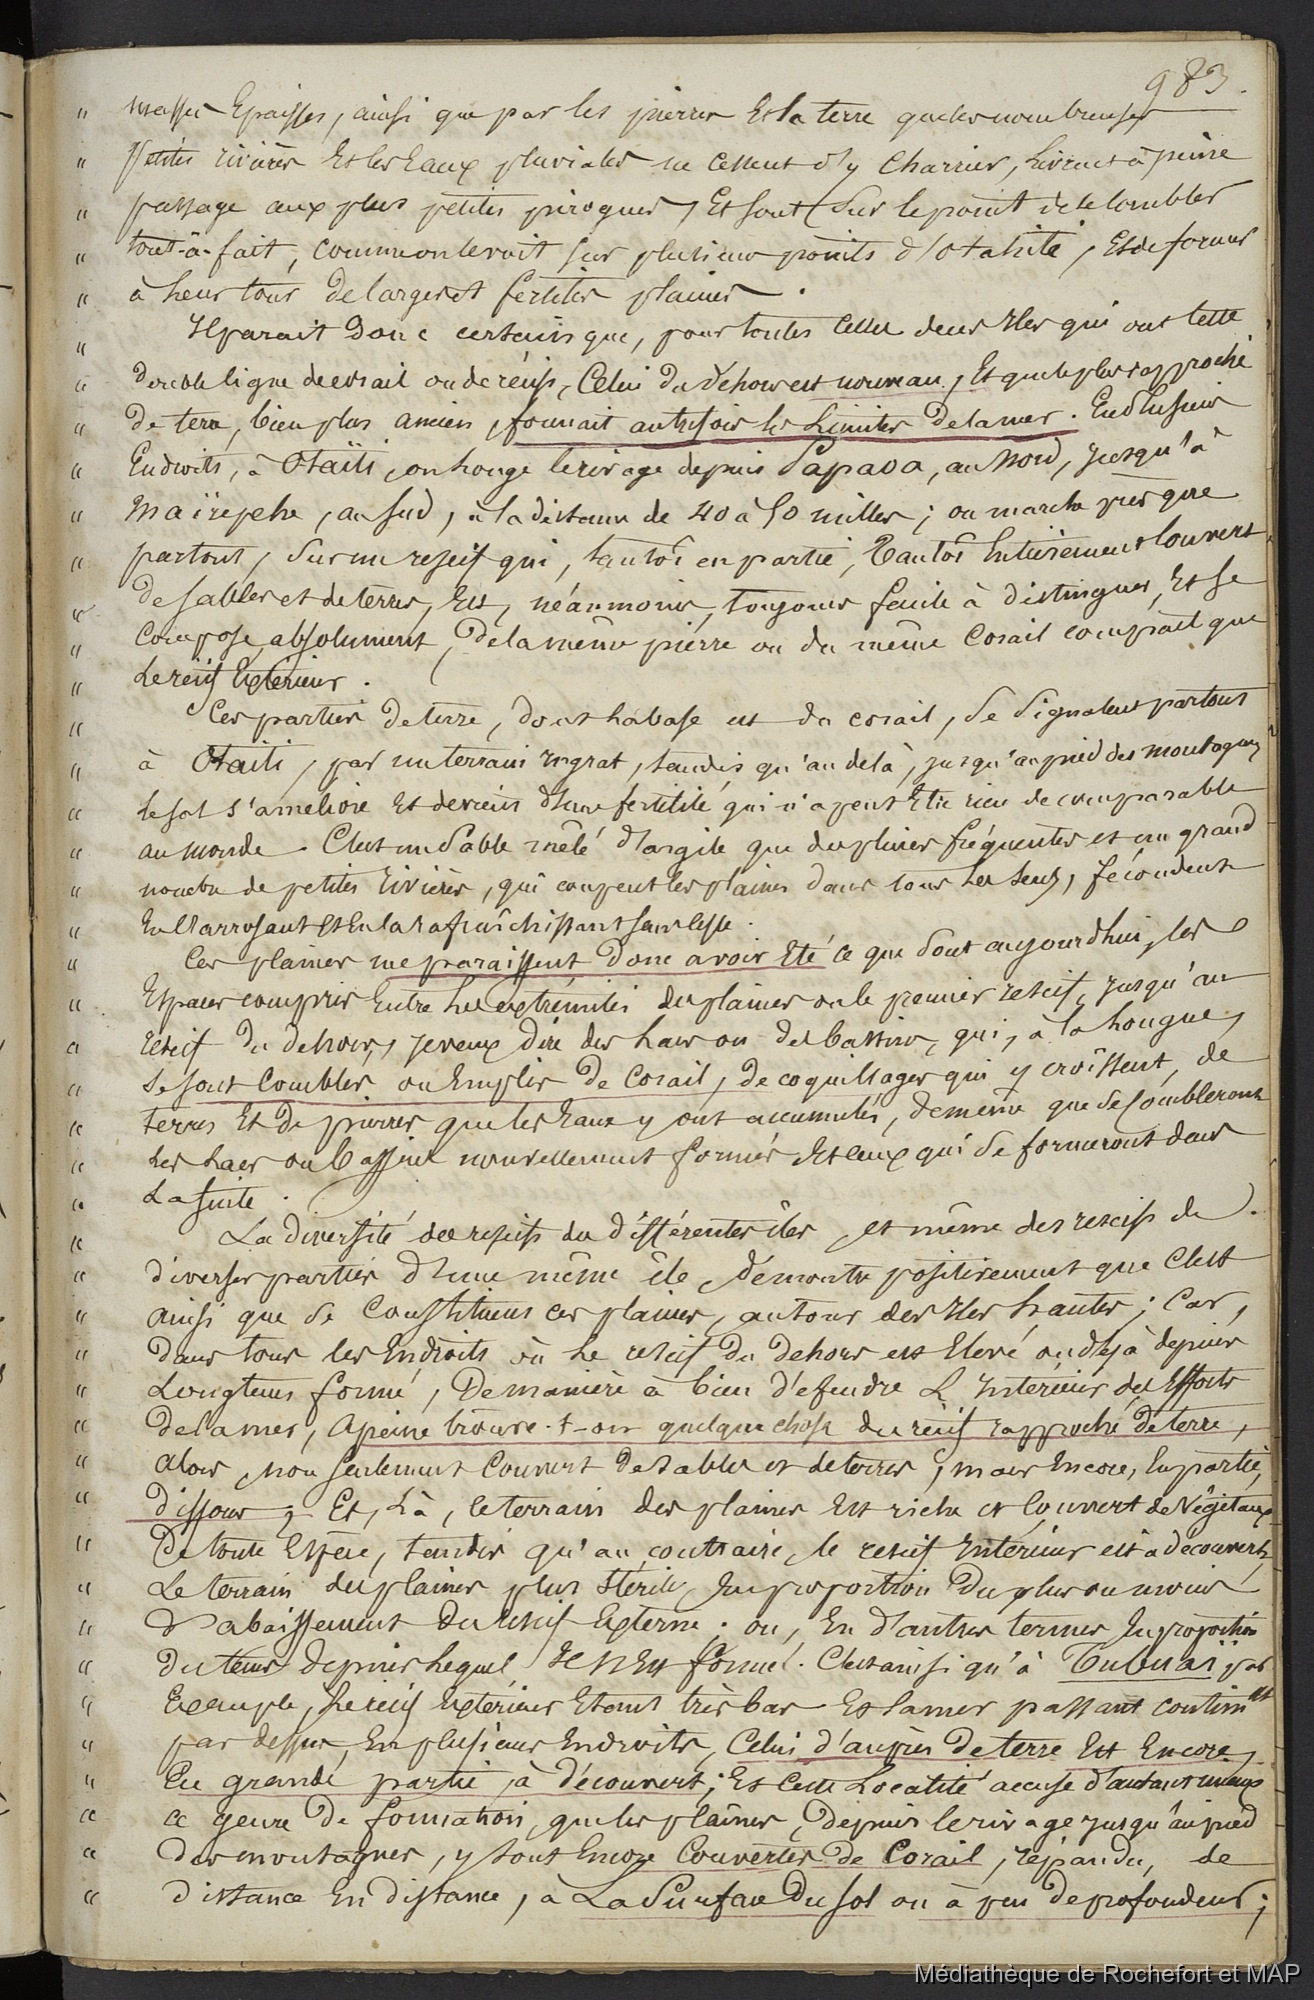 983.
" masses Epaisses, ainsi que par les pierres Et la terre que les nombreuses
" petites rivières Et les Eaux pluviales ne cessent d'y charrier, livrent à peine
" passage aux plus petites pirogues, Et sont sur le point de se combler
" tout-à-fait, comme on le voit sur plusieurs points d'otahite, Et de former
" à leur tour de larges et fertiles plaines.
" Il parait donc certain que, pour toutes celles de ces Iles qui ont cette
" double ligne de corail ou de récifs, Celui du déhors est nouveau, Et que le plus rapproché
" de terre, bien plus ancien, formait autrefois les Limites de la mer. En plusieurs
" Endroits, à Otaïti, on longe le rivage depuis Papaoa, au Nord, jusqu'à
" Maïrepehe, au sud, à la distance de 40 à 50 milles; on marche presque
" partout, sur un rescif qui, tantôt en partie, Tantôt Entièrement couvert
" de sables et de terres, Est, néanmoins, toujours facile à distinguer, Et se
" compose, absolument, de la même pierre ou du même Corail compact que
" le récif Extérieur.
" Ces parties de terre, dont la base est du corail, se signalent partout
" à Otaiti, par un terrain ingrat, tandis qu'au delà, jusqu'au pied des montagnes
" le sol s'améliore Et devient d'une fertilité qui n'a peut Etre rien de comparable
" au monde. C'est un sable mêlé d'argile que des pluies fréquentes et un grand
" nombre de petites rivières, qui coupent les plaines dans tous les sens, fécondent
" En l'arrosant et En la rafraîchissant sans cesse.
" Ces plaines me paraissent donc avoir Eté ce que sont aujourd'hui, les
" Espaces compris Entre les extrémités des plaines ou le premier rescif, jusqu'au
" rescif du dehors, je veux dire des lacs ou des bassins, qui, à la longue,
" se sont comblés ou Emplis de Corail, de coquillages qui y croîssent, de
" terres Et de pierres que les Eaux y ont accumulés, de même que se combleront
" les lacs ou bassins nouvellement formés Et ceux qui se formeront dans
" La suite.
" La diversité des rescifs de différentes îles, et même des rescifs de
" diverses parties d'une même île, démontre positivement que c'est
" ainsi que se constituent ces plaines, autour des Iles hautes; Car,
" dans tous les Endroits où le rescif du dehors est Elevé ou déjà depuis
" Longtems formé, De manière à bien défendre L'Intérieur des Efforts
" de la mer, à peine trouve-t-on quelque chose du récif rapproché de terre,
" alors, non seulement couvert de sables et de terres, mais Encore, En partie,
" dissous; Et, Là, le terrain des plaines Est riche et couvert de Végétaux
" De toute Espèce, tandis qu'au contraire, le rescif Intérieur est à découvert,
" Le terrain des plaines plus stérile, En proportion du plus ou moins
" d'abaissement du rescif Externe; ou, En d'autres termes, En proportion
" du tems depuis Lequel Il s'est formé. C'est ainsi qu'à Tubuaï, par
" Exemple, le récif Extérieur Etant très bas Et la mer passant continmt
" par dessus, En plusieurs Endroits, Celui d'auprès De terre Est Encore,
" En grande partie, à découvert; Et cette Localité accuse d'autant mieux
" ce genre De formation, que les plaînes, depuis le rivage jusqu'au pied
" des montagnes, y sont Encore Couvertes de Corail, répandu, de
" distance En distance, à La Surface Du sol ou à peu De profondeur;
Médiathèque de Rochefort et MAP